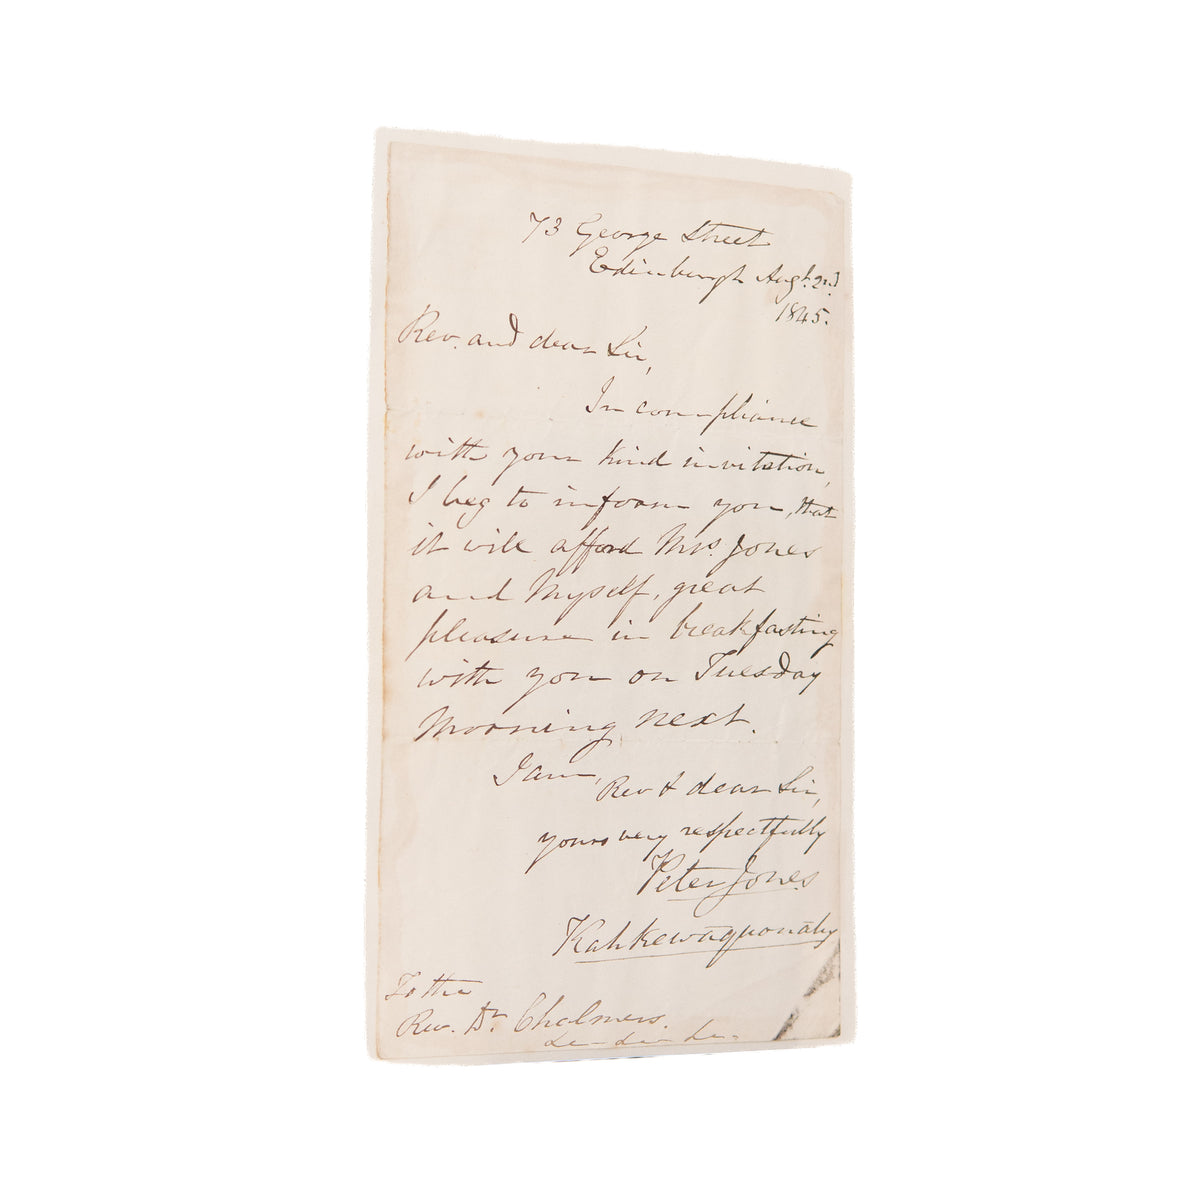 73 George Street
Edinburgh Augt. 2nd.
1845.
Rev. and dear Sir,
In compliance
with your kind invitation,
I beg to inform you, that
it will afford Mrs. Jones
and Myself, great
pleasure in breakfasting
with you on Tuesday
Morning next.
I am,
Rev & dear Sir,
yours very respectfully
Peter Jones
Kahkewaquonaby
To the
Rev. Dr. Chalmers.